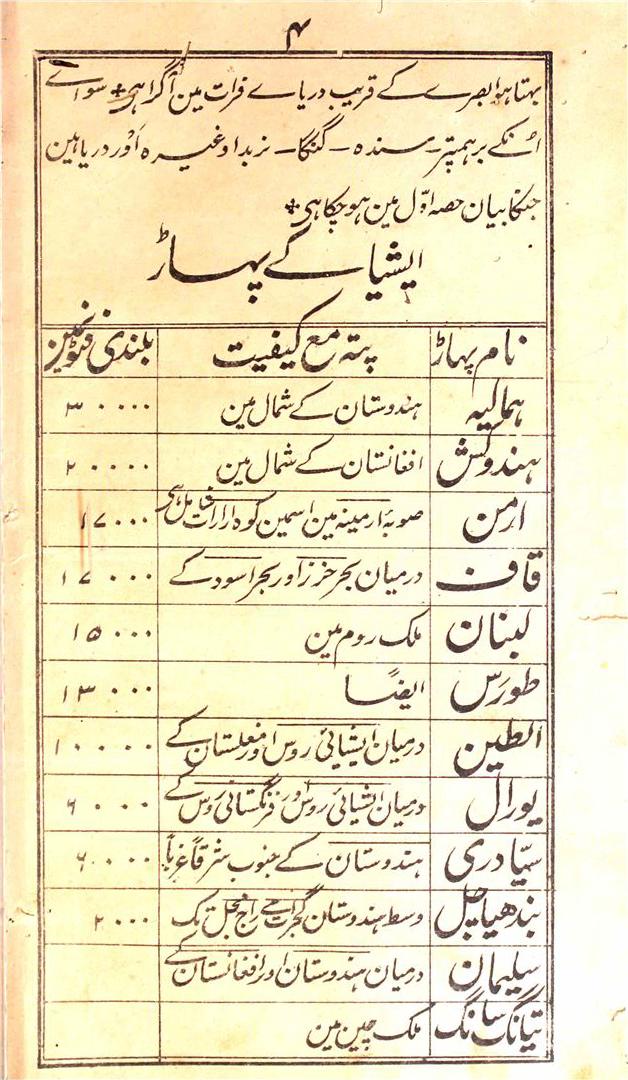 ۴
بہتا ہوا بصرے کے قریب دریاے فرات مین آگرا ہی + سواے
انکے برہمپتر - سندہ - گنگا - نربدا وغیرہ اَوْر دریا ہین
جنکا بیان حصہ اوّل مین ہو چکا ہی +
ایشیا کے پہاڑ
نام پہاڑ پتہ مع کیفیت بلندی فٹونمین
ہمالیہ ہندوستان کے شمال مین ۳۰۰۰۰
ہندوکش افغانستان کے شمال مین ۲۰۰۰۰
ارمن صوبۂ ارمینہ مین اسمین کوہ ارارات شامل ہی ۱۷۰۰۰
قاف درمیان بحر خزز اور بحر اسود کے ۱۷۰۰۰
لبنان ملک روم مین ۱۵۰۰۰
طورس ایضًا ۱۳۰۰۰
الطین درمیان ایشیائی روس اور مغلستان کے ۱۰۰۰۰
یورال درمیان ایشیائی روس اور فرنگستانی روس کے ۶۰۰۰
سیّادری ہندوستان کے جنوب شرقاً غرباً ۶۰۰۰
بندھیاچل وسط ہندوستان گجرات سے راج محل تک ۲۰۰۰
سلیمان درمیان ہندوستان اور افغانستان کے
تیانگ سانگ ملک چین مین